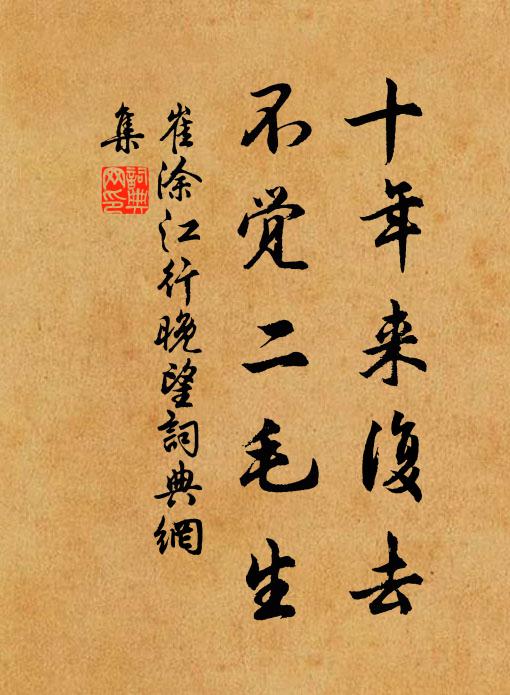 十年来復去
不覚二毛生
崔涂江行晚望詞典網
集
詞典
网印